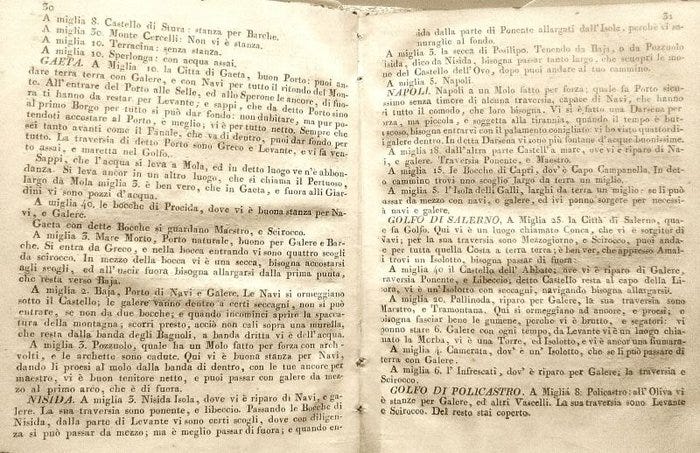 30
A miglia 8. Castello di Stura: stanza per Barche.
A miglia 30. Monte Cercelli: Non vi è stanza.
A miglia 10. Terracina: senza stanza.
A miglia 10. Sperlonga: con acqua assai.
GAETA. A Miglia 10. la Città di Gaeta, buon Porto: puoi an-
dare terra terra con Galere, e con Navi per tutto il ritondo del Mon-
te. All'entrare del Porto alle Selle, ed allo Sperone le ancore, di fuo-
ra ti hanno da restar per Levante; e sappi, che da detto Porto sino
al primo Borgo per tutto si può dar fondo: non dubitare, ma pur po-
tendoti accostare al Porto, e meglio; vi è per tutto netto. Sempre che
sei tanto avanti come il Fanale, che va di dentro, puoi dar fondo per
tutto. La traversia di detto Porto sono Greco e Levante, e vi fa ven-
to assai, e maretta nel Golfo.
Sappi, che l'acqua si leva a Mola, ed in detto luogo ve n'è abbon-
danza. Si leva ancor in un altro luogo, che si chiama il Pertuso,
largo da Mola miglia 3. è ben vero, che in Gaeta, e fuora alli Giar-
dini vi sono pozzi d'acqua.
A miglia 40, le bocche di Procida, dove vi è buona stanza per Na-
vi, e Galere.
Gaeta con dette Bocche si guardano Maestro, e Scirocco.
A miglia 3. Mare Morto, Porto naturale, buono per Galere e Bar-
che. Si entra da Greco, e nella bocca entrando vi sono quattro scogli
da scirocco. In mezzo della bocca vi è una secca, bisogna accostarsi
agli scogli, ed all'uscir fuora bisogna allargarsi dalla prima punta,
che resta verso Baja.
A miglia 2. Baja, Porto di Navi e Galere. Le Navi si ormeggiano
sotto il Castello; le galere vanno dentro a certi seccagni, non si può
entrare, se non da due bocche; e quando incominci aprire la spacca-
tura della montagna; scorri presto, acciò non cali sopra una murella,
che resta dalla banda degli Bagnoli, a banda dritta vi è dell'acqua.
A miglia 3. Pozzuolo, quale ha un Molo fatto per forza con archi-
volti, e le archetto sono cadute. Qui vi è buona stanza per Navi,
dando li proesi al molo dalla banda di dentro, con le tue ancore per
maestro, vi è buon tenitore netto, e puoi passar con galere da mez-
zo al primo arco, che è di fuora.
NISIDA. A miglia 3. Nisida Isola, dove vi è riparo di Navi, e ga-
lere. La sua traversia sono ponente, e libeccio. Passando le Bocche di
Nisida, dalla parte di Levante vi sono certi scogli, dove con diligen-
za si può passar da mezzo; ma è meglio passar di fuora; e quando en-
31
dalla parte di Ponente allargati dall'Isole, perchè vi so-
no
A miglia 3. la secca di Posilipo. Tenendo da Baja, o da Pozzuolo
dico da Nisida, bisogna passar tanto largo, che scuopri le mo-
ne del Castello dell'Ovo, dopo puoi andar al tuo cammino.
A miglia 5. Napoli.
NAPOLI. Napoli a un Molo fatto per forza; quale fa Porto sicu-
rissimo senza timore di alcuna traversia, capace di Navi, che hanno
tutto il comodo, che loro bisogna. Vi si è fatto una Darsena per
ma piccola, e soggetta alla tirannìa, quando il tempo è bur-
rascoso, bisogna entrarvi con il palamento conigliato: vi ho visto quattordi-
ci galere dentro. In detta Darsena vi sono più fontane d'acque buonissime.
A miglia 18. dall'altra parte Castell'a mare, ove vi è riparo di Na-
vi, e galere. Traversia Ponente, e Maestro.
A miglia 15. le Bocche di Capri, dov'è Capo Campanella. In det-
to cammino trovi uno scoglio largo da terra un miglio.
A miglia 5. l'Isola delli Galli, larghi da terra un miglio: se li può
passar da mezzo con navi, e galere, ed ivi ponno sorgere per necessi-
tà navi e galere.
GOLFO DI SALERNO. A Miglia 25. la Città di Salerno, qua-
le fa Golfo. Qui vi è un luogo chiamato Conca, che vi è sorgitor di
Navi; per la sua traversia sono Mezzogiorno, e Scirocco, puoi andar
per tutta quella Costa a terra terra; è ben ver, che appresso Amal-
fi trovi un Isolotto, bisogna passar di fuora:
A miglia 40 il Castello dell'Abbate: ove vi è riparo di Galere,
traversia Ponente, e Libeccio, detto Castello resta al capo della Li-
cora, vi è un'Isolotto con seccagni, navigando bisogna allargarsili.
A miglia 20, Pallinoda, riparo per Galere, la sua traversia sono
Maestro, e Tramontana. Qui si ormeggino ad ancore, e proesi; e
bisogna fasciar bene le gumene, perchè vi è brutto, e segatori: vi
ponno stare 6. Galere con ogni tempo, da Levante vi è un luogo chia-
mato la Morba, vi è una Torre, ed Isolotto, e vi è ancora una fiumara.
A miglia 4. Camerata, dov'è un' Isolotto, che se li può passare di
terra con Galere.
A miglia 6. l'Infrescati, dov'è riparo per Galere; la traversia è
Scirocco.
GOLFO DI POLICASTRO. A Miglia 8. Policastro: all'Oliva vi
è stanze per Galere, ed altri Vascelli. La sua traversia sono Levante
e Scirocco. Del resto stai coperto.